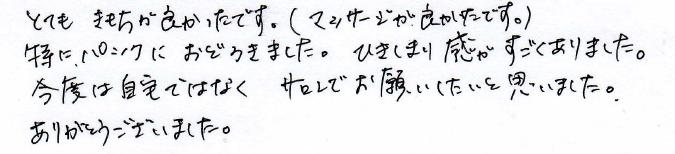 とても きもちが良かったです。(マッサージが良かたです。)
特に、パンクに おどろきました。 ひきしまり感が すごくありました。
今度は自宅ではなく サロンでお願いしたいと思いました。
ありがとうございました。